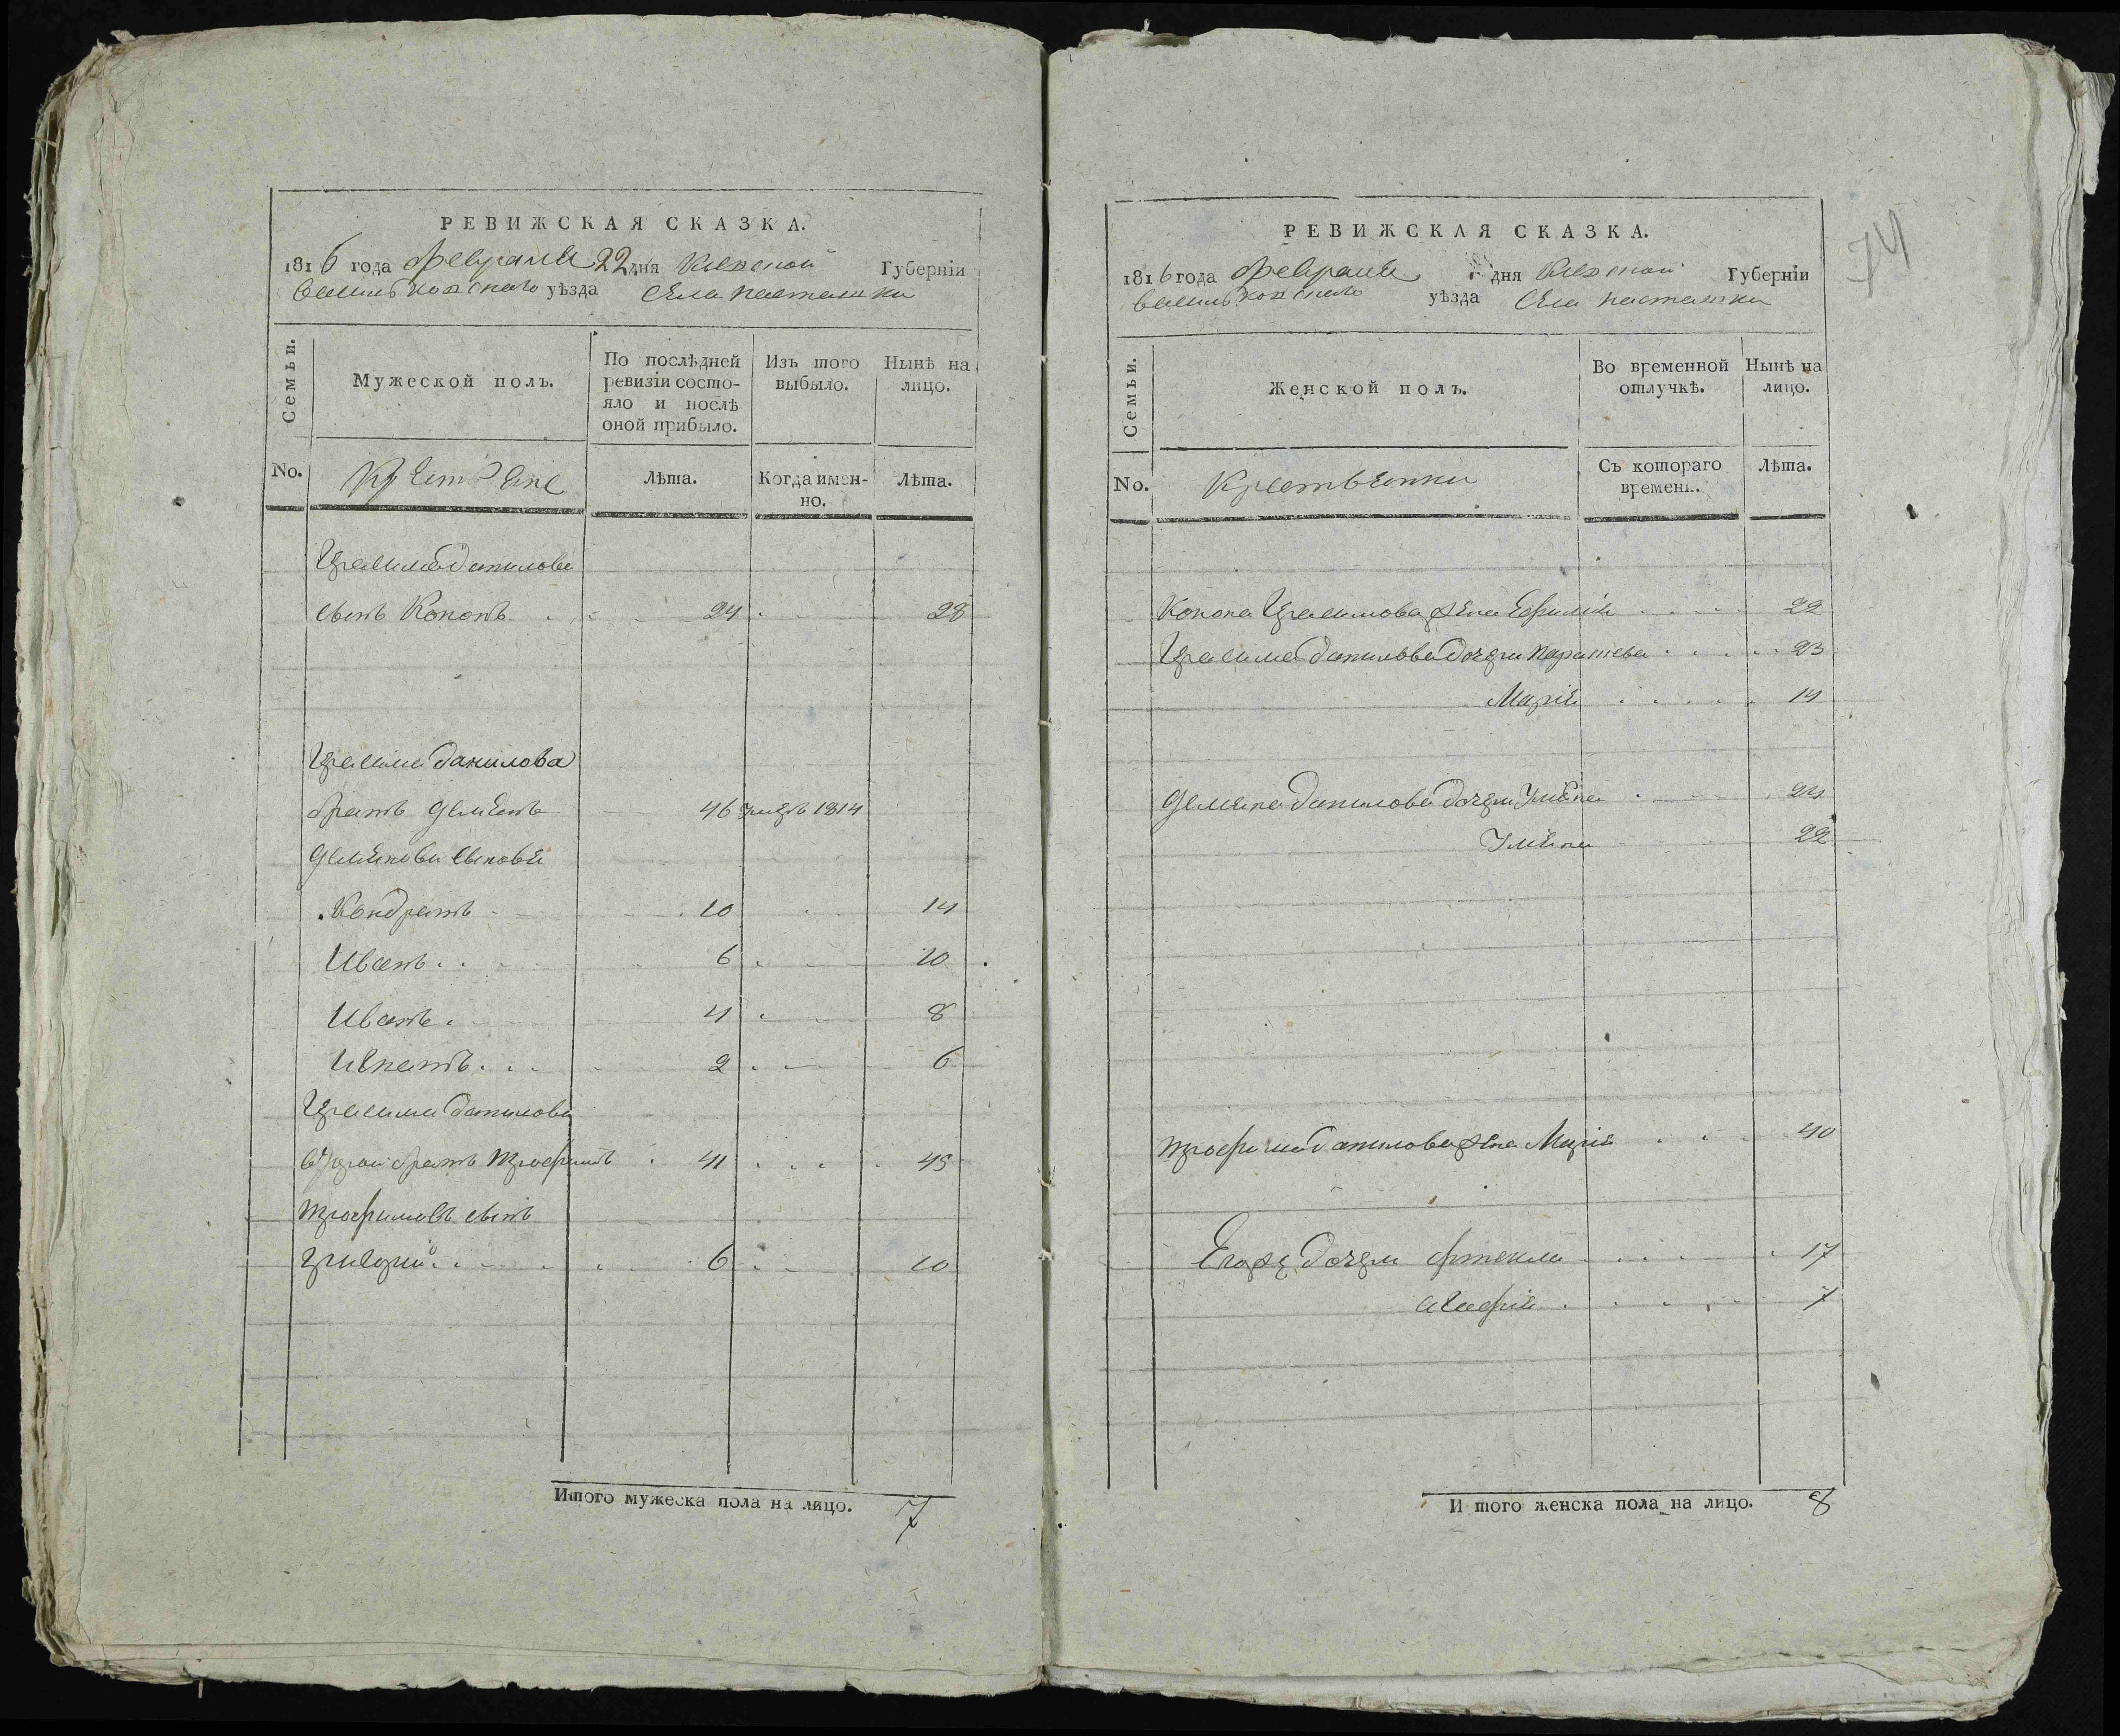 РЕВИЖСКАЯ СКАЗКА.
1816 года февраля 22 дня Киевской Губерніи
Васильковскаго уѣзда Села Пасташки
Семьи.
Мужеской полъ.
По послѣдней ревизіи состояло и послѣ оной прибыло.
Изъ того выбыло.
Нынѣ на лицо.
No.
Крестьяне
Лѣта.
Когда именно.
Лѣта.
Герасима Данилова
сынъ Кононъ 24 28
Герасима Данилова
братъ Демьянъ 46 1814
Демьяновы сыновья
Кондратъ 10 14
Иванъ 6 10
Иванъ 4 8
Игнатъ 2 6
Герасима Данилова
второй братъ Трофимъ 41 45
Трофимовъ сынъ
Григорій 6 10
Итого мужеска пола на лицо. 7
74
РЕВИЖСКАЯ СКАЗКА.
1816 года февраля дня Киевской Губерніи
Васильковскаго уѣзда Села Пасташки
Семьи.
Женской полъ.
Во временной отлучкѣ.
Нынѣ на лицо.
No.
Крестьянки
Съ котораго времени.
Лѣта.
Конона Герасимова жена Ефимія 22
Герасима Данилова дочери Параскева 23
Марія 14
Демьяна Данилова дочери Ульяна 24
Ульяна 22
Трофима Данилова жена Марія 40
Егоже дочери Фтекла 17
Агафія 7
И того женска пола на лицо. 8